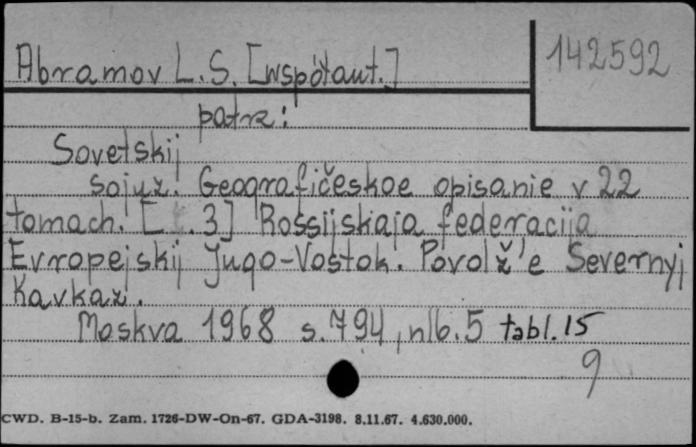 142592
Abramov L.S. [współaut.]
patrz:
Sovetskij
sojuz. Geografičeskoe opisanie v 22
tomach. [t.3] Rossijskaja federacija
Evropejskij Jugo-Vostok. Povolž'e Severnyj
Kavkaz.
Moskva 1968 s.794, nlb.5 tabl.15
9
CWD. B-15-b. Zam. 1726-DW-On-67. GDA-3198. 8.11.67. 4.630.000.